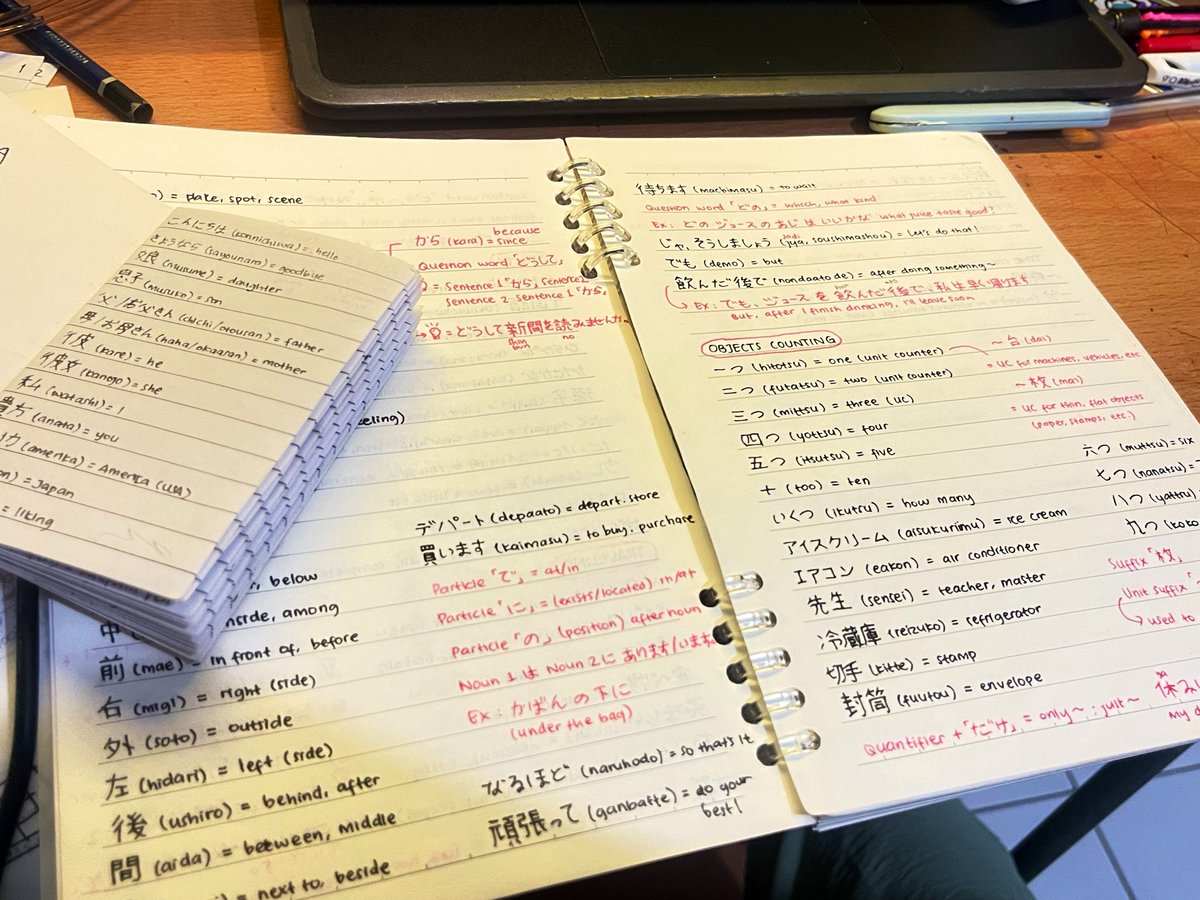 = place, spot, scene
こんにちは (konnichiwa) = hello
さようなら (sayounara) = goodbye
(musume) = daughter
息子 (musuko) = son
父/お父さん (chichi/otousan) = father
母/お母さん (haha/okaasan) = mother
彼 (kare) = he
彼女 (kanojo) = she
私 (watashi) = I
貴方 (anata) = you
(amerika) = America (USA)
= Japan
= liking
because
から (kara) = since
Question word「どうして」
= Sentence 1「から」, Sentence
Sentence 2 - Sentence 1「から」
= どうして新聞を読みませんか
shin no
bun
eeling)
デパート (depaato) = depart. store
買います (kaimasu) = to buy, purchase
, below
inside, among
前 (mae) = in front of, before
右 (migi) = right (side)
外 (soto) = outside
左 (hidari) = left (side)
後 (ushiro) = behind, after
間 (aida) = between, middle
= next to, beside
Particle「で」= at/in
Particle「に」= (exists/located) in/at
Particle「の」(position) after noun
Noun 1 は Noun 2 に あります/います
Ex: かばんの下に
(under the bag)
なるほど (naruhodo) = so that's it
頑張って (ganbatte) = do your
best!
待ちます (machimasu) = to wait
Question word「どの」= which, what kind
Ex: どのジュースのあじはいいかな what juice taste good?
じゃ, そうしましょう (jya, soushimashou) = let's do that!
でも (demo) = but
飲んだ後で (nondaato de) = after doing something~
Ex: でも、ジュースを飲んだ後で、私は早い帰ります
But, after I finish drinking, I'll leave soon
OBJECTS COUNTING
一つ (hitotsu) = one (unit counter)
~台 (dai)
= UC for machines, vehicles, etc
二つ (futatsu) = two (unit counter)
~枚 (mai)
= UC for thin, flat objects
(paper, stamps, etc.)
三つ (mittsu) = three (UC)
四つ (yottsu) = four
五つ (itsutsu) = five
六つ (muttsu) = six
十 (too) = ten
七つ (nanatsu) =
いくつ (ikutsu) = how many
八つ (yattsu)
アイスクリーム (aisukurimu) = ice cream
九つ (koko
エアコン (eakon) = air conditioner
Suffix「枚」
先生 (sensei) = teacher, master
Unit suffix「
used to
冷蔵庫 (reizuko) = refrigerator
切手 (kitte) = stamp
封筒 (fuutou) = envelope
Quantifier +「だけ」= only~ ; just~
休み
My d